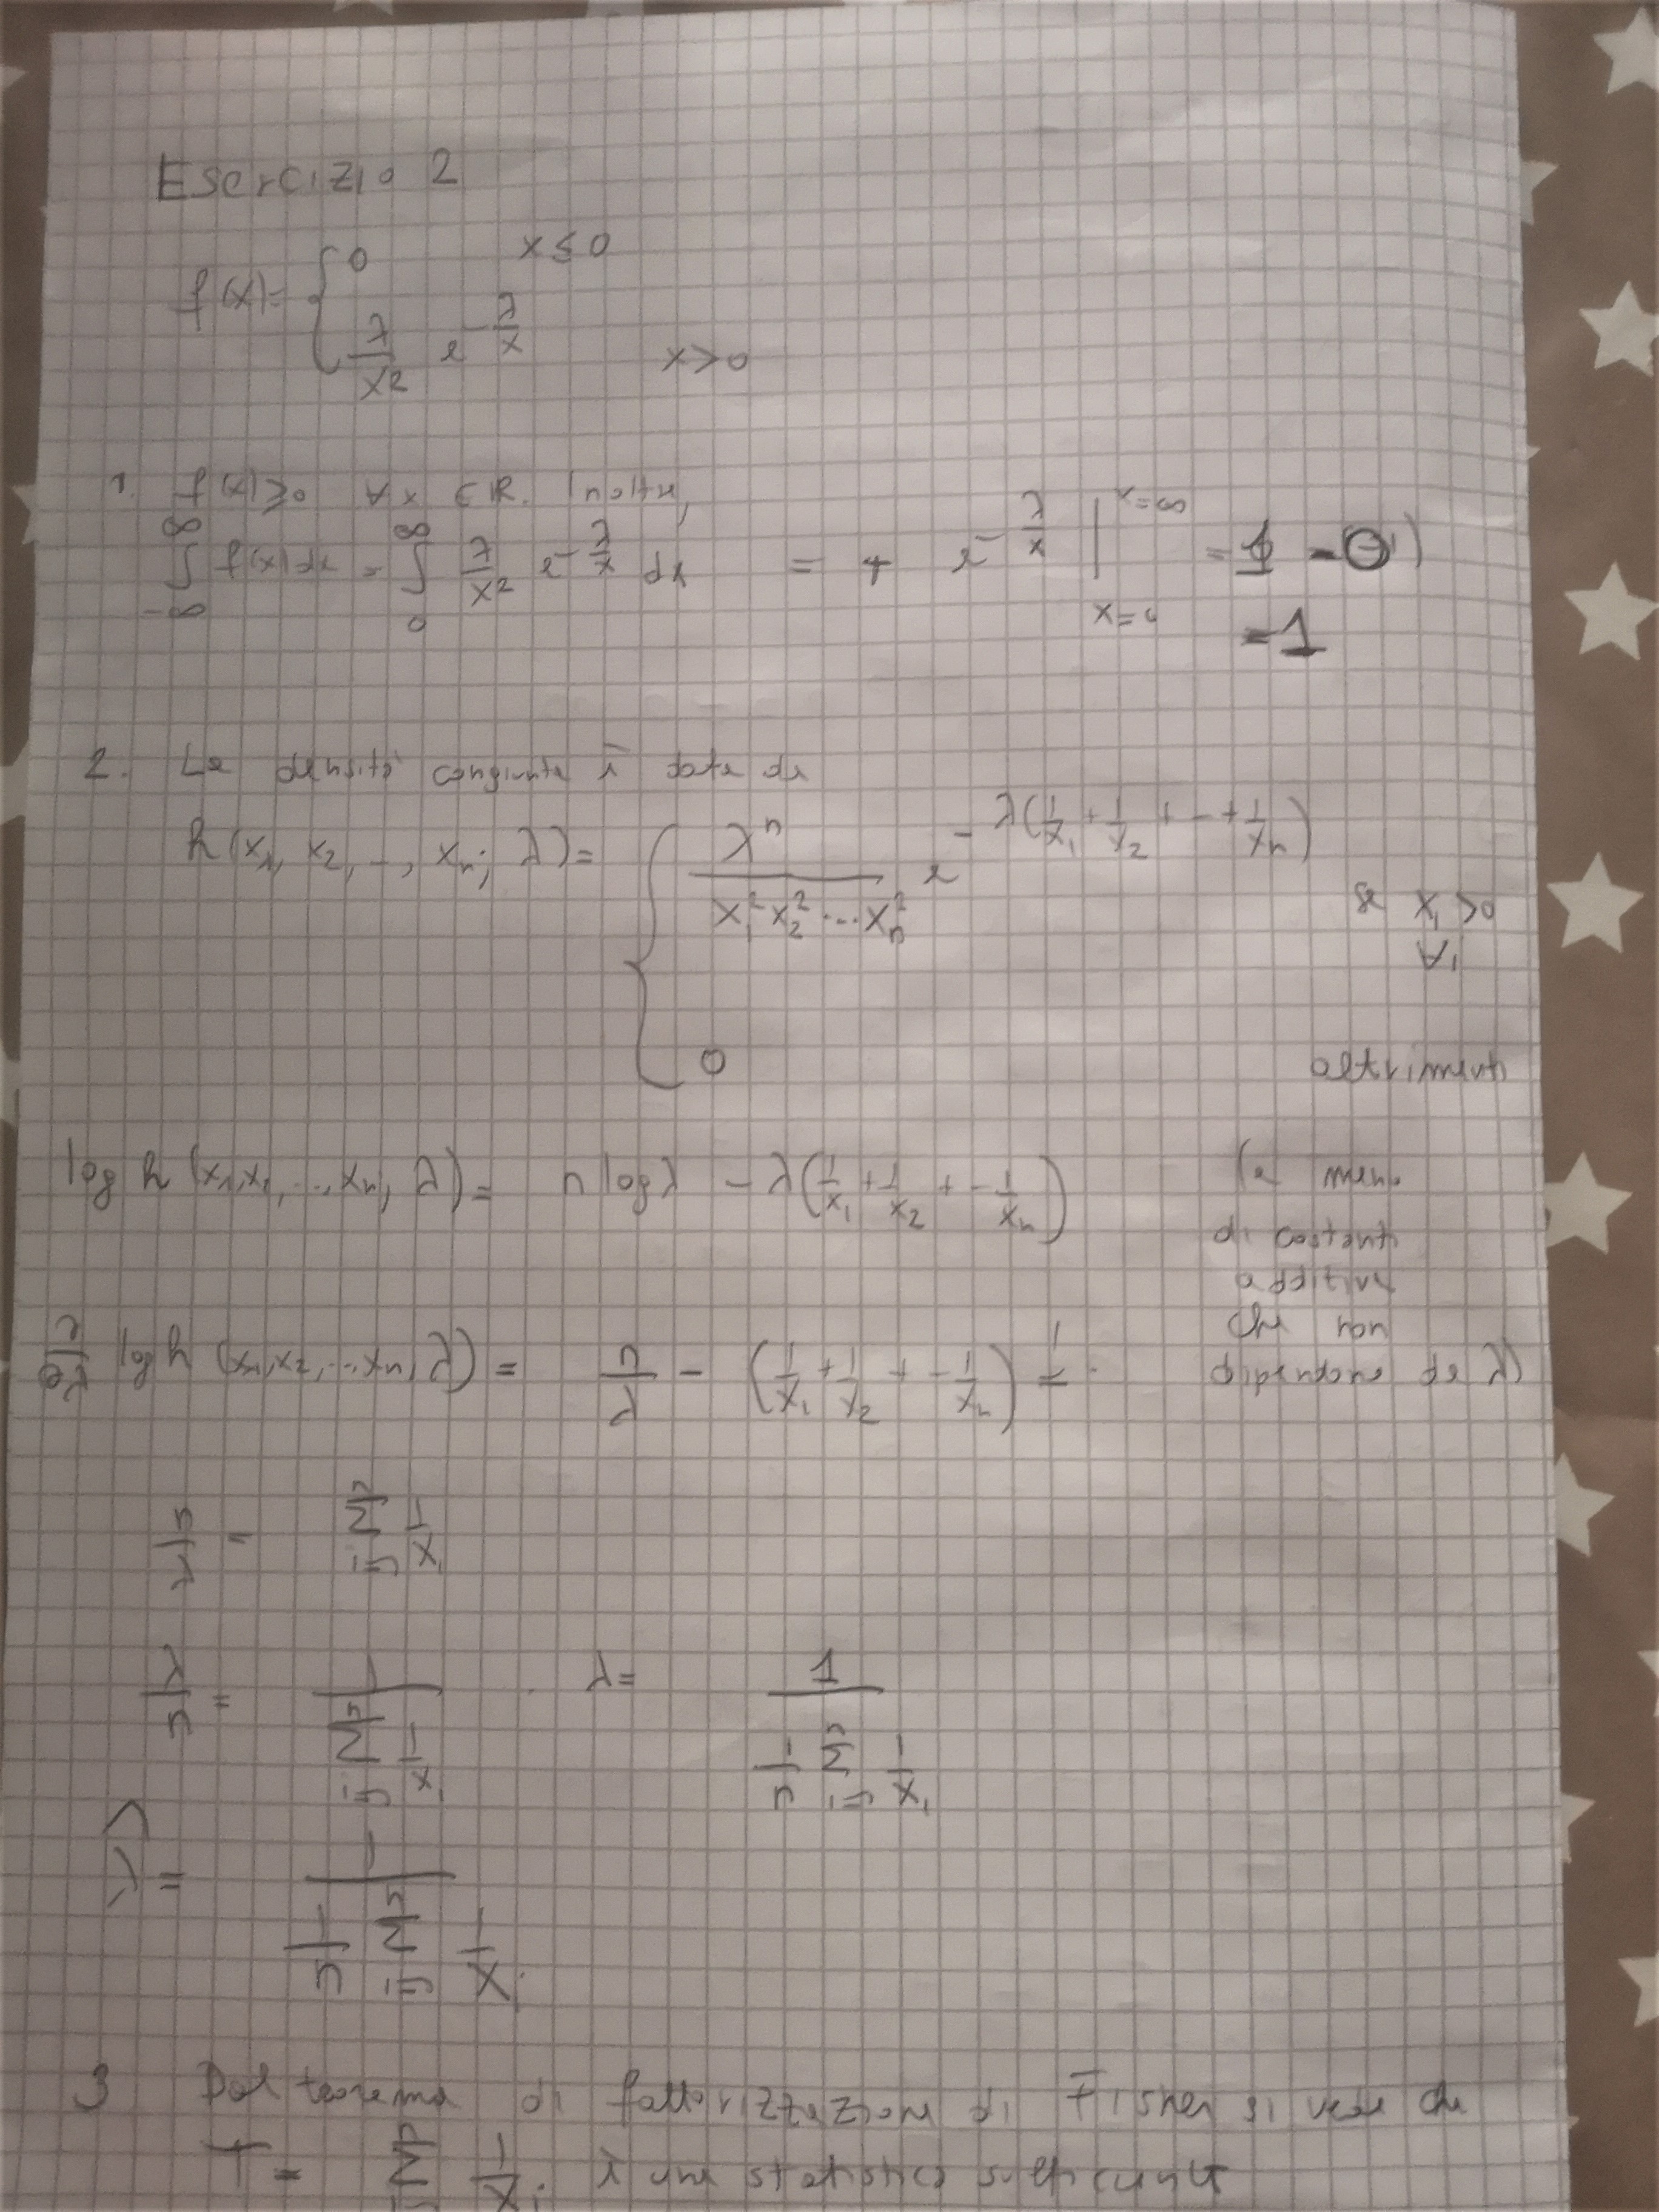 Esercizio 2
f(x)= { 0 x ≤ 0
λ/x² e^(-λ/x) x>0
1. f(x)≥0 ∀x ∈ ℝ. Inoltre,
∫_{-∞}^{∞} f(x)dx = ∫_0^∞ λ/x² e^(-λ/x) dx = + e^(-λ/x) |_{x=0}^{x=∞} = 1 - 0
= 1
2. La densità congiunta è data da
h(x₁, x₂, ..., xₙ; λ) = { λⁿ/(x₁² x₂² ... xₙ²) e^(-λ(1/x₁ + 1/x₂ + ... + 1/xₙ)) se xᵢ >0 ∀i
0 altrimenti
log h(x₁,x₂,...,xₙ; λ) = n log λ - λ(1/x₁ + 1/x₂ + ... 1/xₙ) (a meno
di costanti
additive
che non
dipendono da λ)
∂/∂λ log h(x₁,x₂,...,xₙ; λ) = n/λ - (1/x₁ + 1/x₂ + ... 1/xₙ) =
n/λ = Σ_{i=1}^n 1/xᵢ
λ/n = 1/(Σ_{i=1}^n 1/xᵢ) λ = 1/(1/n Σ_{i=1}^n 1/xᵢ)
λ̂ = 1/(1/n Σ_{i=1}^n 1/Xᵢ)
3 Dal teorema di fattorizzazione di Fisher si vede che
T = Σ 1/Xᵢ è una statistica sufficiente